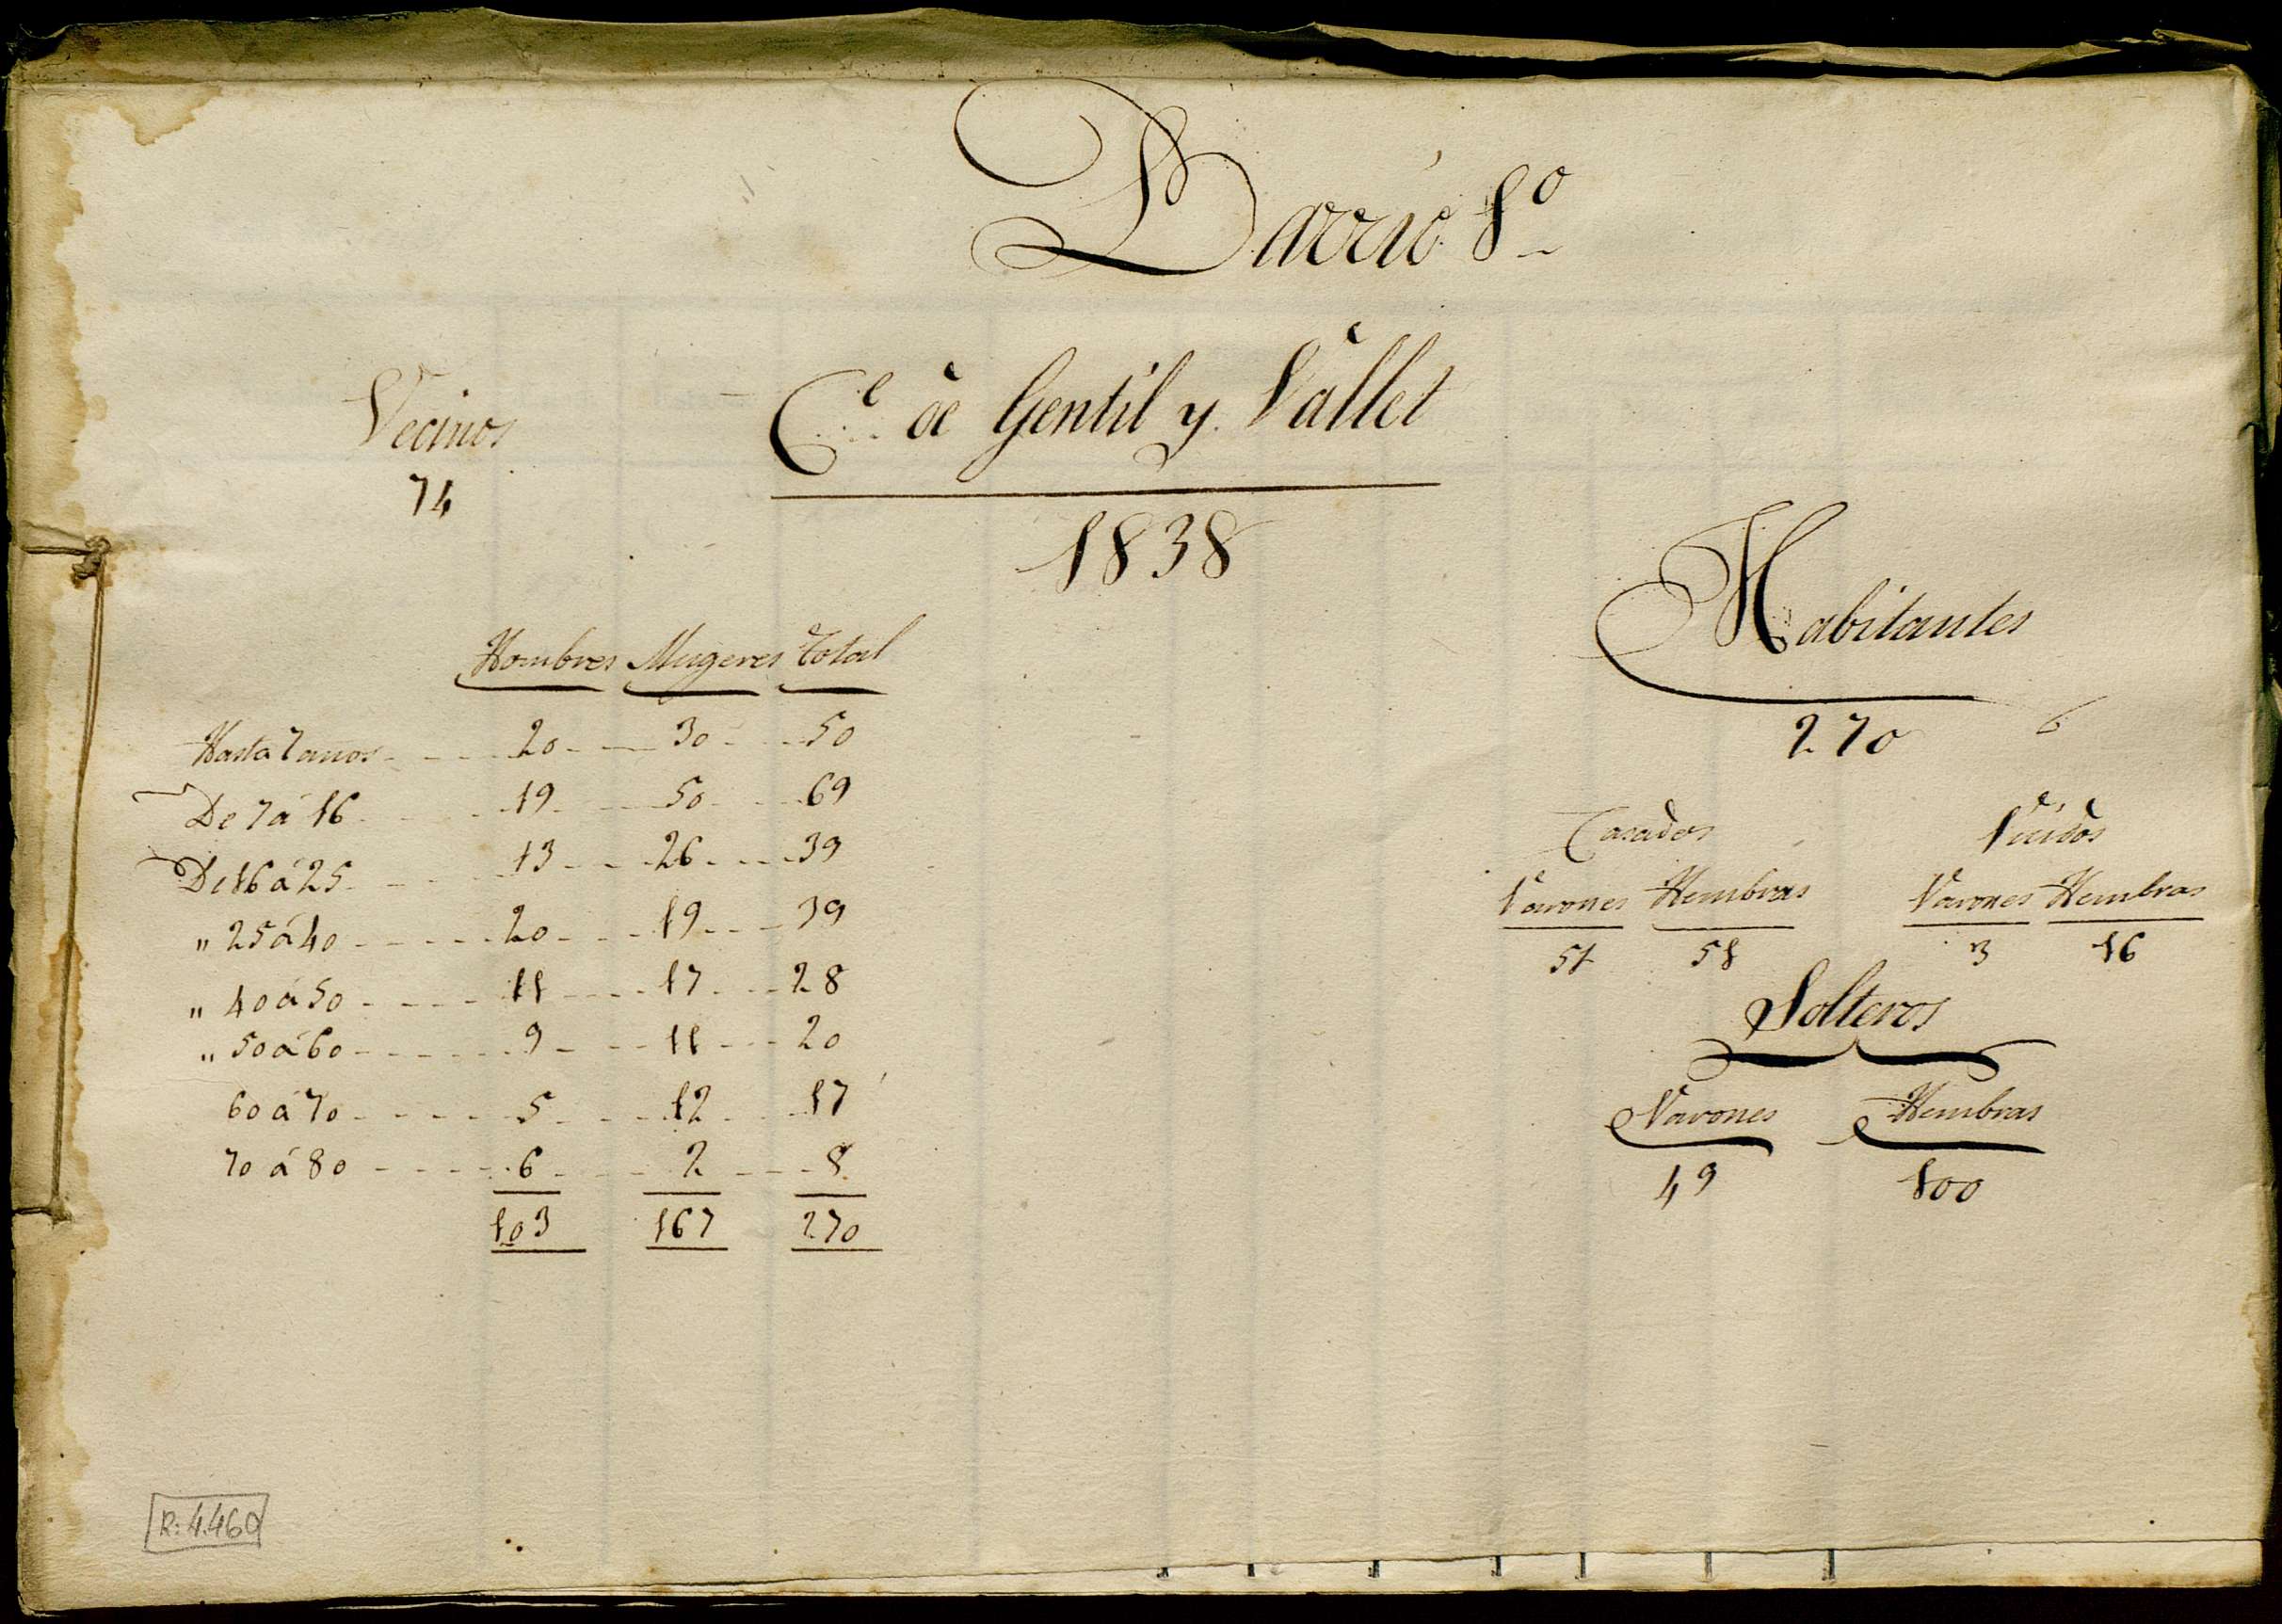 Barrio 1º
Cᵉ de Gentil y Vallet
1838
Vecinos
74
Hombres Mugeres Total
Hasta 7 años 20 30 50
De 7 á 16 19 50 69
De 16 á 25 13 26 39
" 25 á 40 20 19 39
" 40 á 50 11 17 28
" 50 á 60 9 11 20
60 á 70 5 12 17
70 á 80 6 2 8
103 167 270
Habitantes
270
Casados Viudos
Varones Hembras Varones Hembras
51 51 3 16
Solteros
Varones Hembras
49 100
R: 4.460